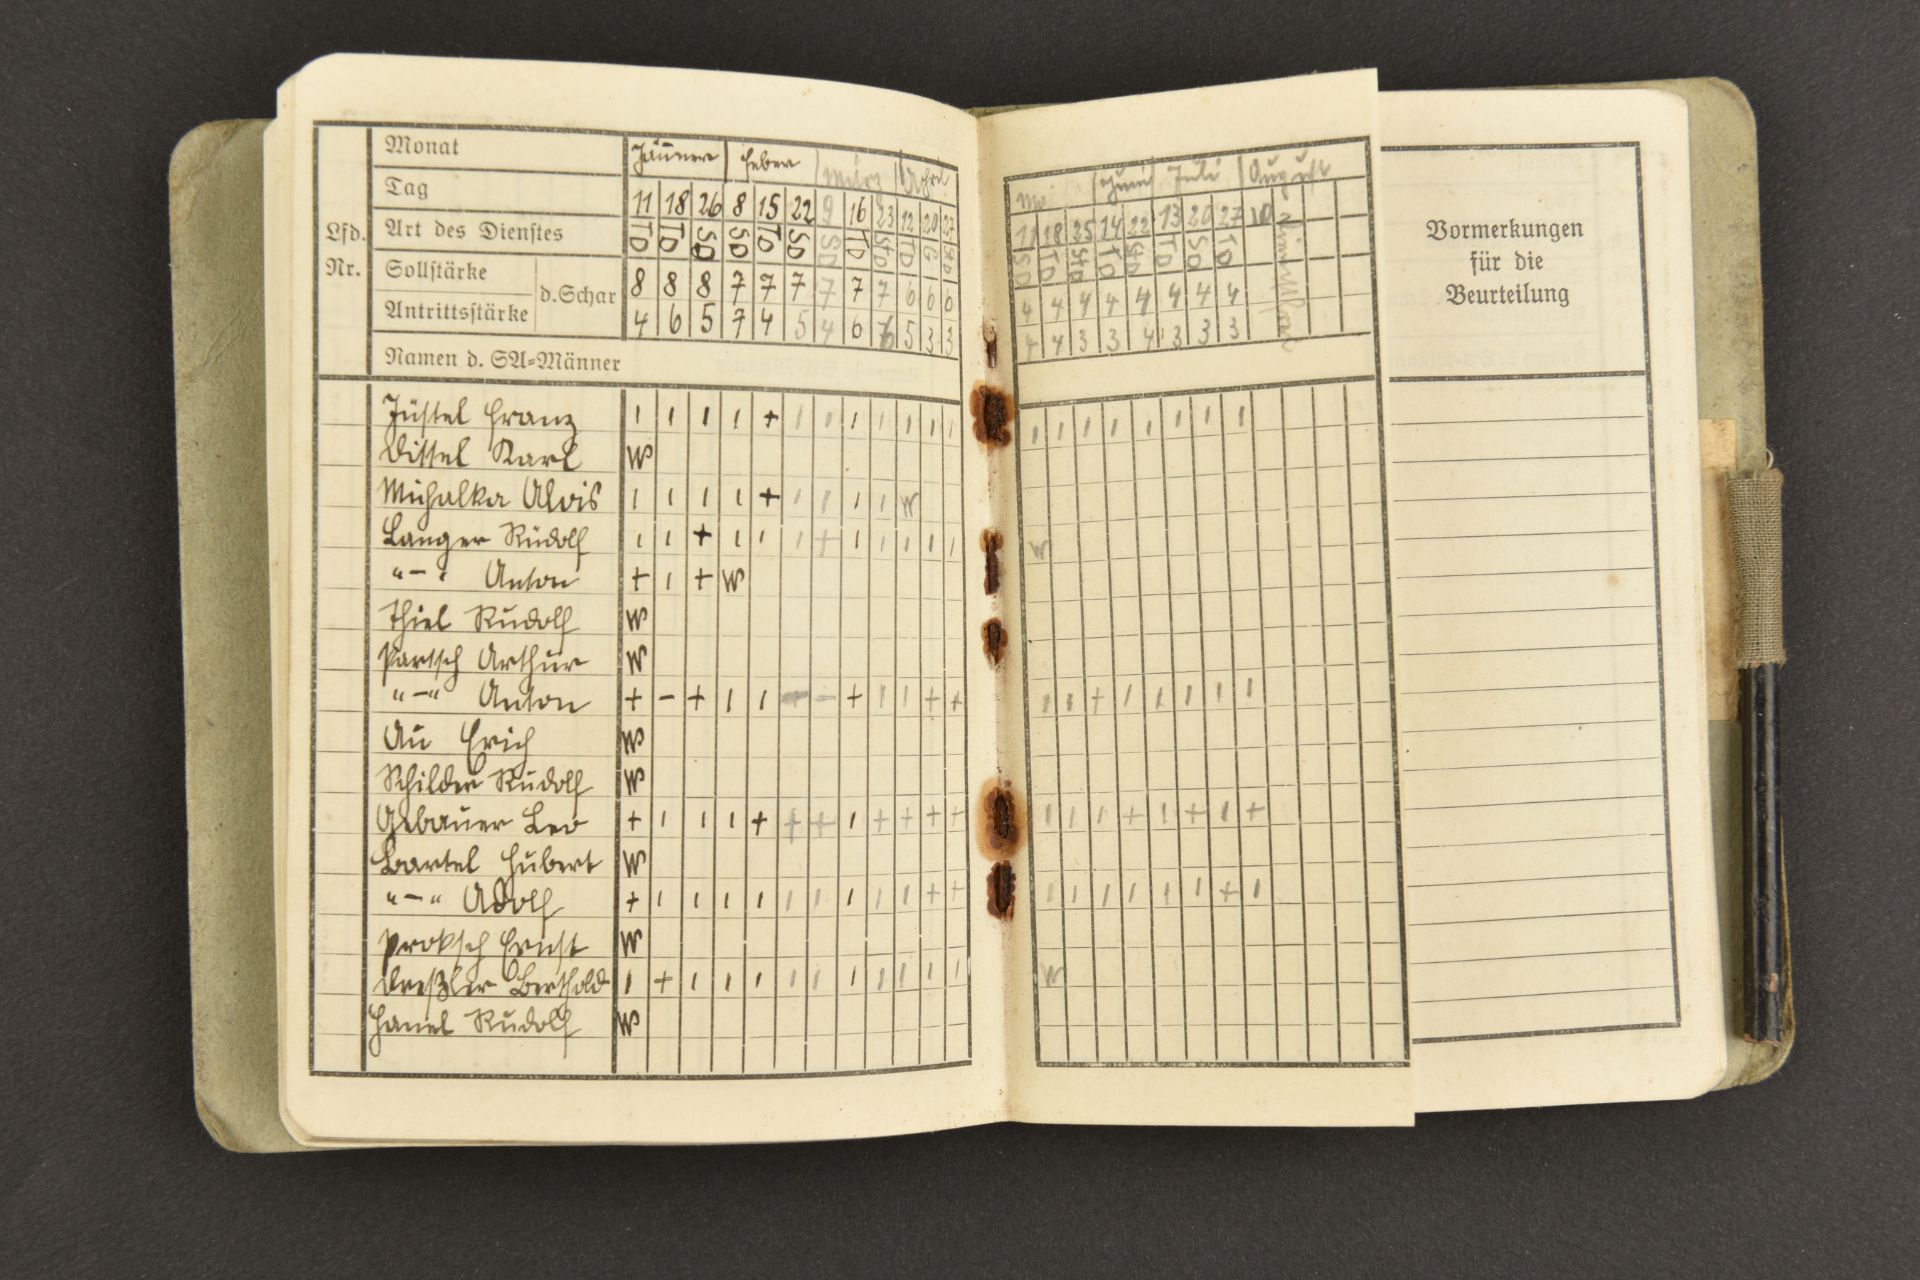 Monat Jänner Feber März April
Tag 11 18 26 8 15 22 9 16 23 12 20 27
Lfd. Nr.
Art des Dienstes TD TD SD SD TD SD SD TD StD TD
Sollstärke 8 8 8 7 7 7 7 7 7 6 6 6
d.Schar
Antrittsstärke 4 6 5 7 4 5 4 6 6 5 3 3
Namen d. SA=Männer
Jüstel Franz ı ı ı ı + ı ı ı ı ı ı ı
Dittel Karl W
Michalka Alois ı ı ı ı + ı ı ı ı W
Langer Rudolf ı ı + ı ı ı + ı ı ı ı ı
"-" Anton + ı + W
Thiel Rudolf W
Partsch Arthur W
"-" Anton + - + ı ı - - + ı ı + +
Au Erich W
Schilder Rudolf W
Gebauer Leo + ı ı ı + + + ı + + + +
Bartel Hubert W
"-" Adolf + ı ı ı ı ı ı ı ı ı + +
Proksch Ernst W
Dreßler Berthold ı + ı ı ı ı ı ı ı ı ı ı
Hanel Rudolf W
Juni Juli August
11 18 25 14 22 13 20 27 10
SD TD StD TD StD TD SD TD
4 4 4 4 4 4 4 4
4 4 3 3 4 3 3 3
ı ı ı ı ı ı ı ı
W
ı ı + ı + ı ı ı
ı ı ı + ı + ı +
ı ı ı ı ı ı + ı
W
Vormerkungen
für die
Beurteilung